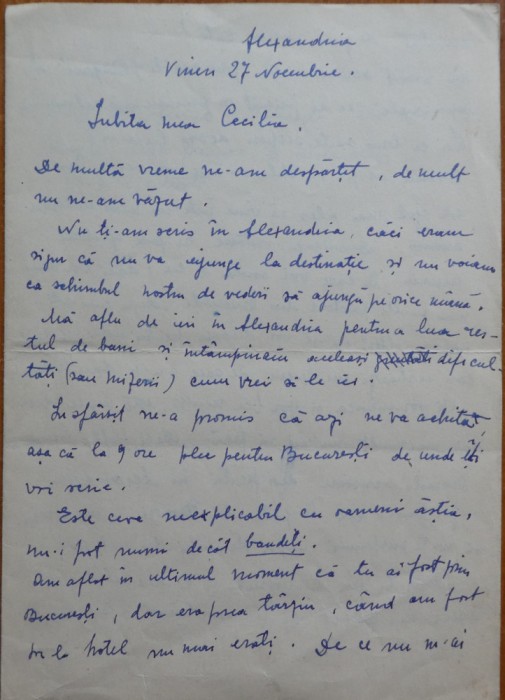 Alexandria
Vineri 27 Noembrie.
Iubita mea Cecilia.
De multă vreme ne-am despărțit, de mult
nu ne-am văzut.
Nu ți-am scris în Alexandria, căci eram
sigur că nu va ajunge la destinație și nu voiam
ca schimbul nostru de vederi să ajungă pe orice mână.
Mă aflu de ieri în Alexandria pentru a lua res-
tul de bani și întâmpinăm aceleași dificul-
tăți (sau mizerii) cum vrei să le iei.
In sfârșit ne-a promis că azi ne va achita,
așa că la 9 ore plec pentru București de unde îți
voi scrie.
Este ceva inexplicabil cu oamenii ăștia,
nu-i pot numi decât bandiți.
Am aflat în ultimul moment că tu ai fost prin
București, dar era prea târziu, când am fost
la hotel nu mai erați. De ce nu m-ai